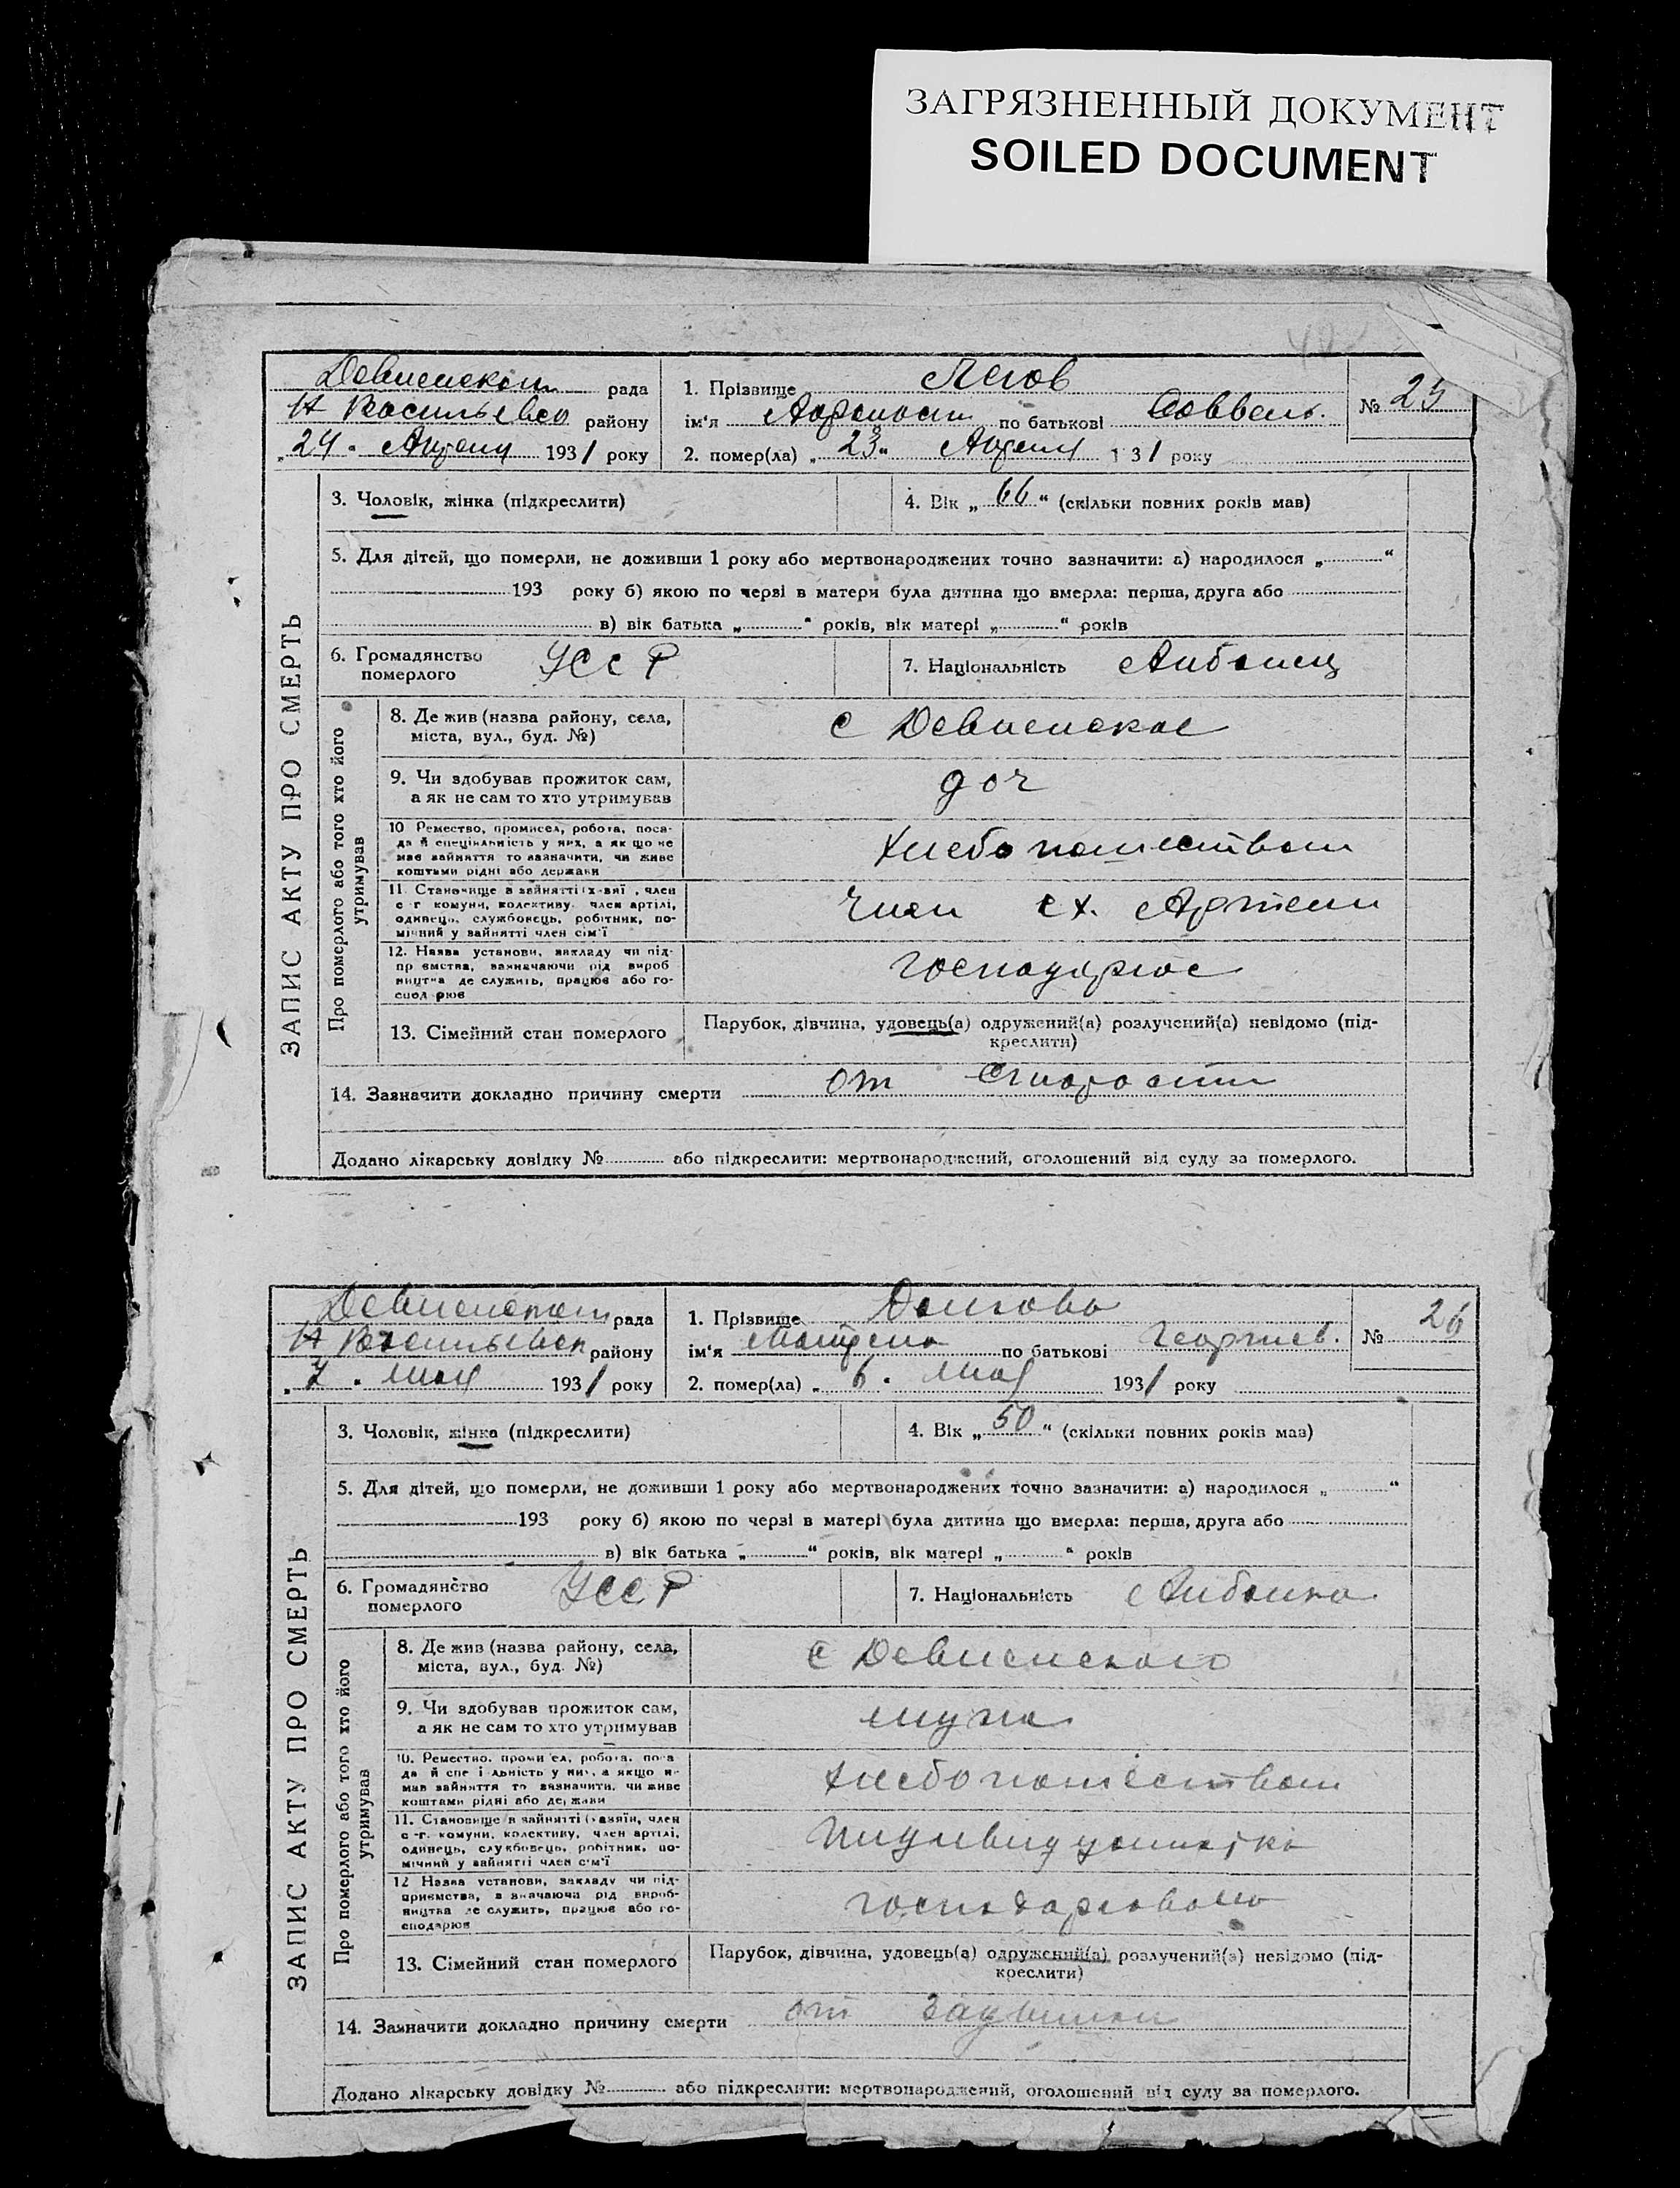 ЗАГРЯЗНЕННЫЙ ДОКУМЕНТ
SOILED DOCUMENT
Девненскои рада
Н Васильевсо району
„24“ Апреля 1931 року
1. Прізвище
ім'я по батькові Соввель.
2. помер(ла) „23“ Апреля 131 року
№ 25
ЗАПИС АКТУ ПРО СМЕРТЬ
3. Чоловік, жінка (підкреслити)
4. Вік „66“ (скільки повних років мав)
5. Для дітей, що померли, не доживши 1 року або мертвонароджених точно зазначити: а) народилося „ “
193 року б) якою по черзі в матери була дитина що вмерла: перша, друга або
в) вік батька „ “ років, вік матері „ “ років
6. Громадянство
померлого
УССР
7. Національність Албанец
Про померлого або того хто його
утримував
8. Де жив (назва району, села,
міста, вул., буд. №)
с Девненское
9. Чи здобував прожиток сам,
а як не сам то хто утримував
доч
10 Ремество, промисел, робота, поса-
да й спеціяльність у них, а як що не
має зайняття то зазначити, чи живе
коштами рідні або держави
Хлебопашеством
11. Становище в зайнятті (хазяї, член
с г комуни, колективу, член артілі,
одинець, службовець, робітник, по-
мічний у зайнятті член сім'ї
Член сх. Артели
12. Назва установи, закладу чи під-
пр ємства, зазначаючи рід вироб
ництва де служить, працює або го-
спод рює
господарює
13. Сімейний стан померлого
Парубок, дівчина, удовець(а) одружений(а) розлучений(а) невідомо (під-
креслити)
14. Зазначити докладно причину смерти от старости
Додано лікарську довідку № або підкреслити: мертвонароджений, оголошений від суду за померлого.
Девненскои рада
Н Васильевск району
„7“ мая 1931 року
1. Прізвище
ім'я по батькові Георгиев.
2. помер(ла) „6“ мая 1931 року
№ 26
ЗАПИС АКТУ ПРО СМЕРТЬ
3. Чоловік, жінка (підкреслити)
4. Вік „50“ (скільки повних років мав)
5. Для дітей, що померли, не доживши 1 року або мертвонароджених точно зазначити: а) народилося „ “
193 року б) якою по черзі в матері була дитина що вмерла: перша, друга або
в) вік батька „ “ років, вік матері „ “ років
6. Громадянство
померлого
УССР
7. Національність Албанка
Про померлого або того хто його
утримував
8. Де жив (назва району, села,
міста, вул., буд. №)
с Девненского
9. Чи здобував прожиток сам,
а як не сам то хто утримував
мужа
10. Ремество, проми ел, робота, поса
да й спе і льність у них, а якщо не
має зайняття то зазначити, чи живе
коштами рідні або держави
Хлебопашеством
11. Становище в зайнятті (хазяїн, член
с -г. комуни, колективу, член артілі,
одинець, службовець, робітник, по-
мічний у зайнятті член сім'ї
12 Назва установи, закладу чи під-
приємства, зазначаючи рід вироб-
ництва де служить, працює або го-
сподарює
13. Сімейний стан померлого
Парубок, дівчина, удовець(а) одружений(а) розлучений(а) невідомо (під-
креслити)
14. Зазначити докладно причину смерти от
Додано лікарську довідку № або підкреслити: мертвонароджений, оголошений від суду за померлого.